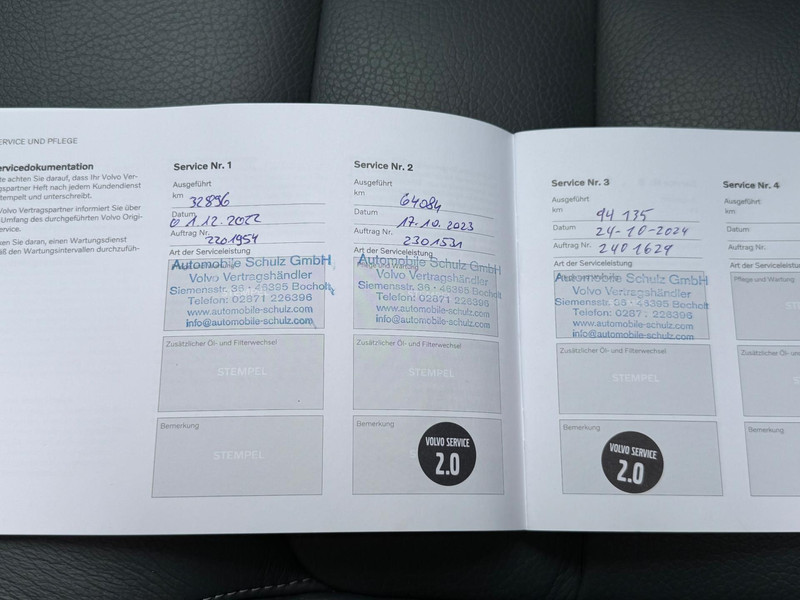 ERVICE UND PFLEGE
ervicedokumentation
te achten Sie darauf, dass Ihr Volvo Ver-
gspartner Heft nach jedem Kundendienst
tempelt und unterschreibt.
Volvo Vertragspartner informiert Sie über
Umfang des durchgeführten Volvo Origi-
ervice.
ken Sie daran, einen Wartungsdienst
äß den Wartungsintervallen durchzufüh-
Service Nr. 1
Ausgeführt
km 32896
Datum 01.12.2022
Auftrag Nr. 2201954
Art der Serviceleistung
Automobile Schulz GmbH
Volvo Vertragshändler
Siemensstr. 36 · 46395 Bocholt
Telefon: 02871 226396
www.automobile-schulz.com
info@automobile-schulz.com
Zusätzlicher Öl- und Filterwechsel
STEMPEL
Bemerkung
STEMPEL
Service Nr. 2
Ausgeführt
km 64084
Datum 17.10.2023
Auftrag Nr. 2301531
Art der Serviceleistung
Pflege und Wartung
Automobile Schulz GmbH
Volvo Vertragshändler
Siemensstr. 36 · 46395 Bocholt
Telefon: 02871 226396
www.automobile-schulz.com
info@automobile-schulz.com
Zusätzlicher Öl- und Filterwechsel
STEMPEL
Bemerkung
VOLVO SERVICE
2.0
Service Nr. 3
Ausgeführt
km 94 135
Datum 24-10-2024
Auftrag Nr. 2401624
Art der Serviceleistung
Automobile Schulz GmbH
Volvo Vertragshändler
Siemensstr. 36 · 46395 Bocholt
Telefon: 02871 226396
www.automobile-schulz.com
info@automobile-schulz.com
Zusätzlicher Öl- und Filterwechsel
STEMPEL
Bemerkung
VOLVO SERVICE
2.0
Service Nr. 4
Ausgeführt
km
Datum
Auftrag Nr.
Art der Serviceleistu
Pflege und Wartung
Zusätzlicher Öl- und
Bemerkung